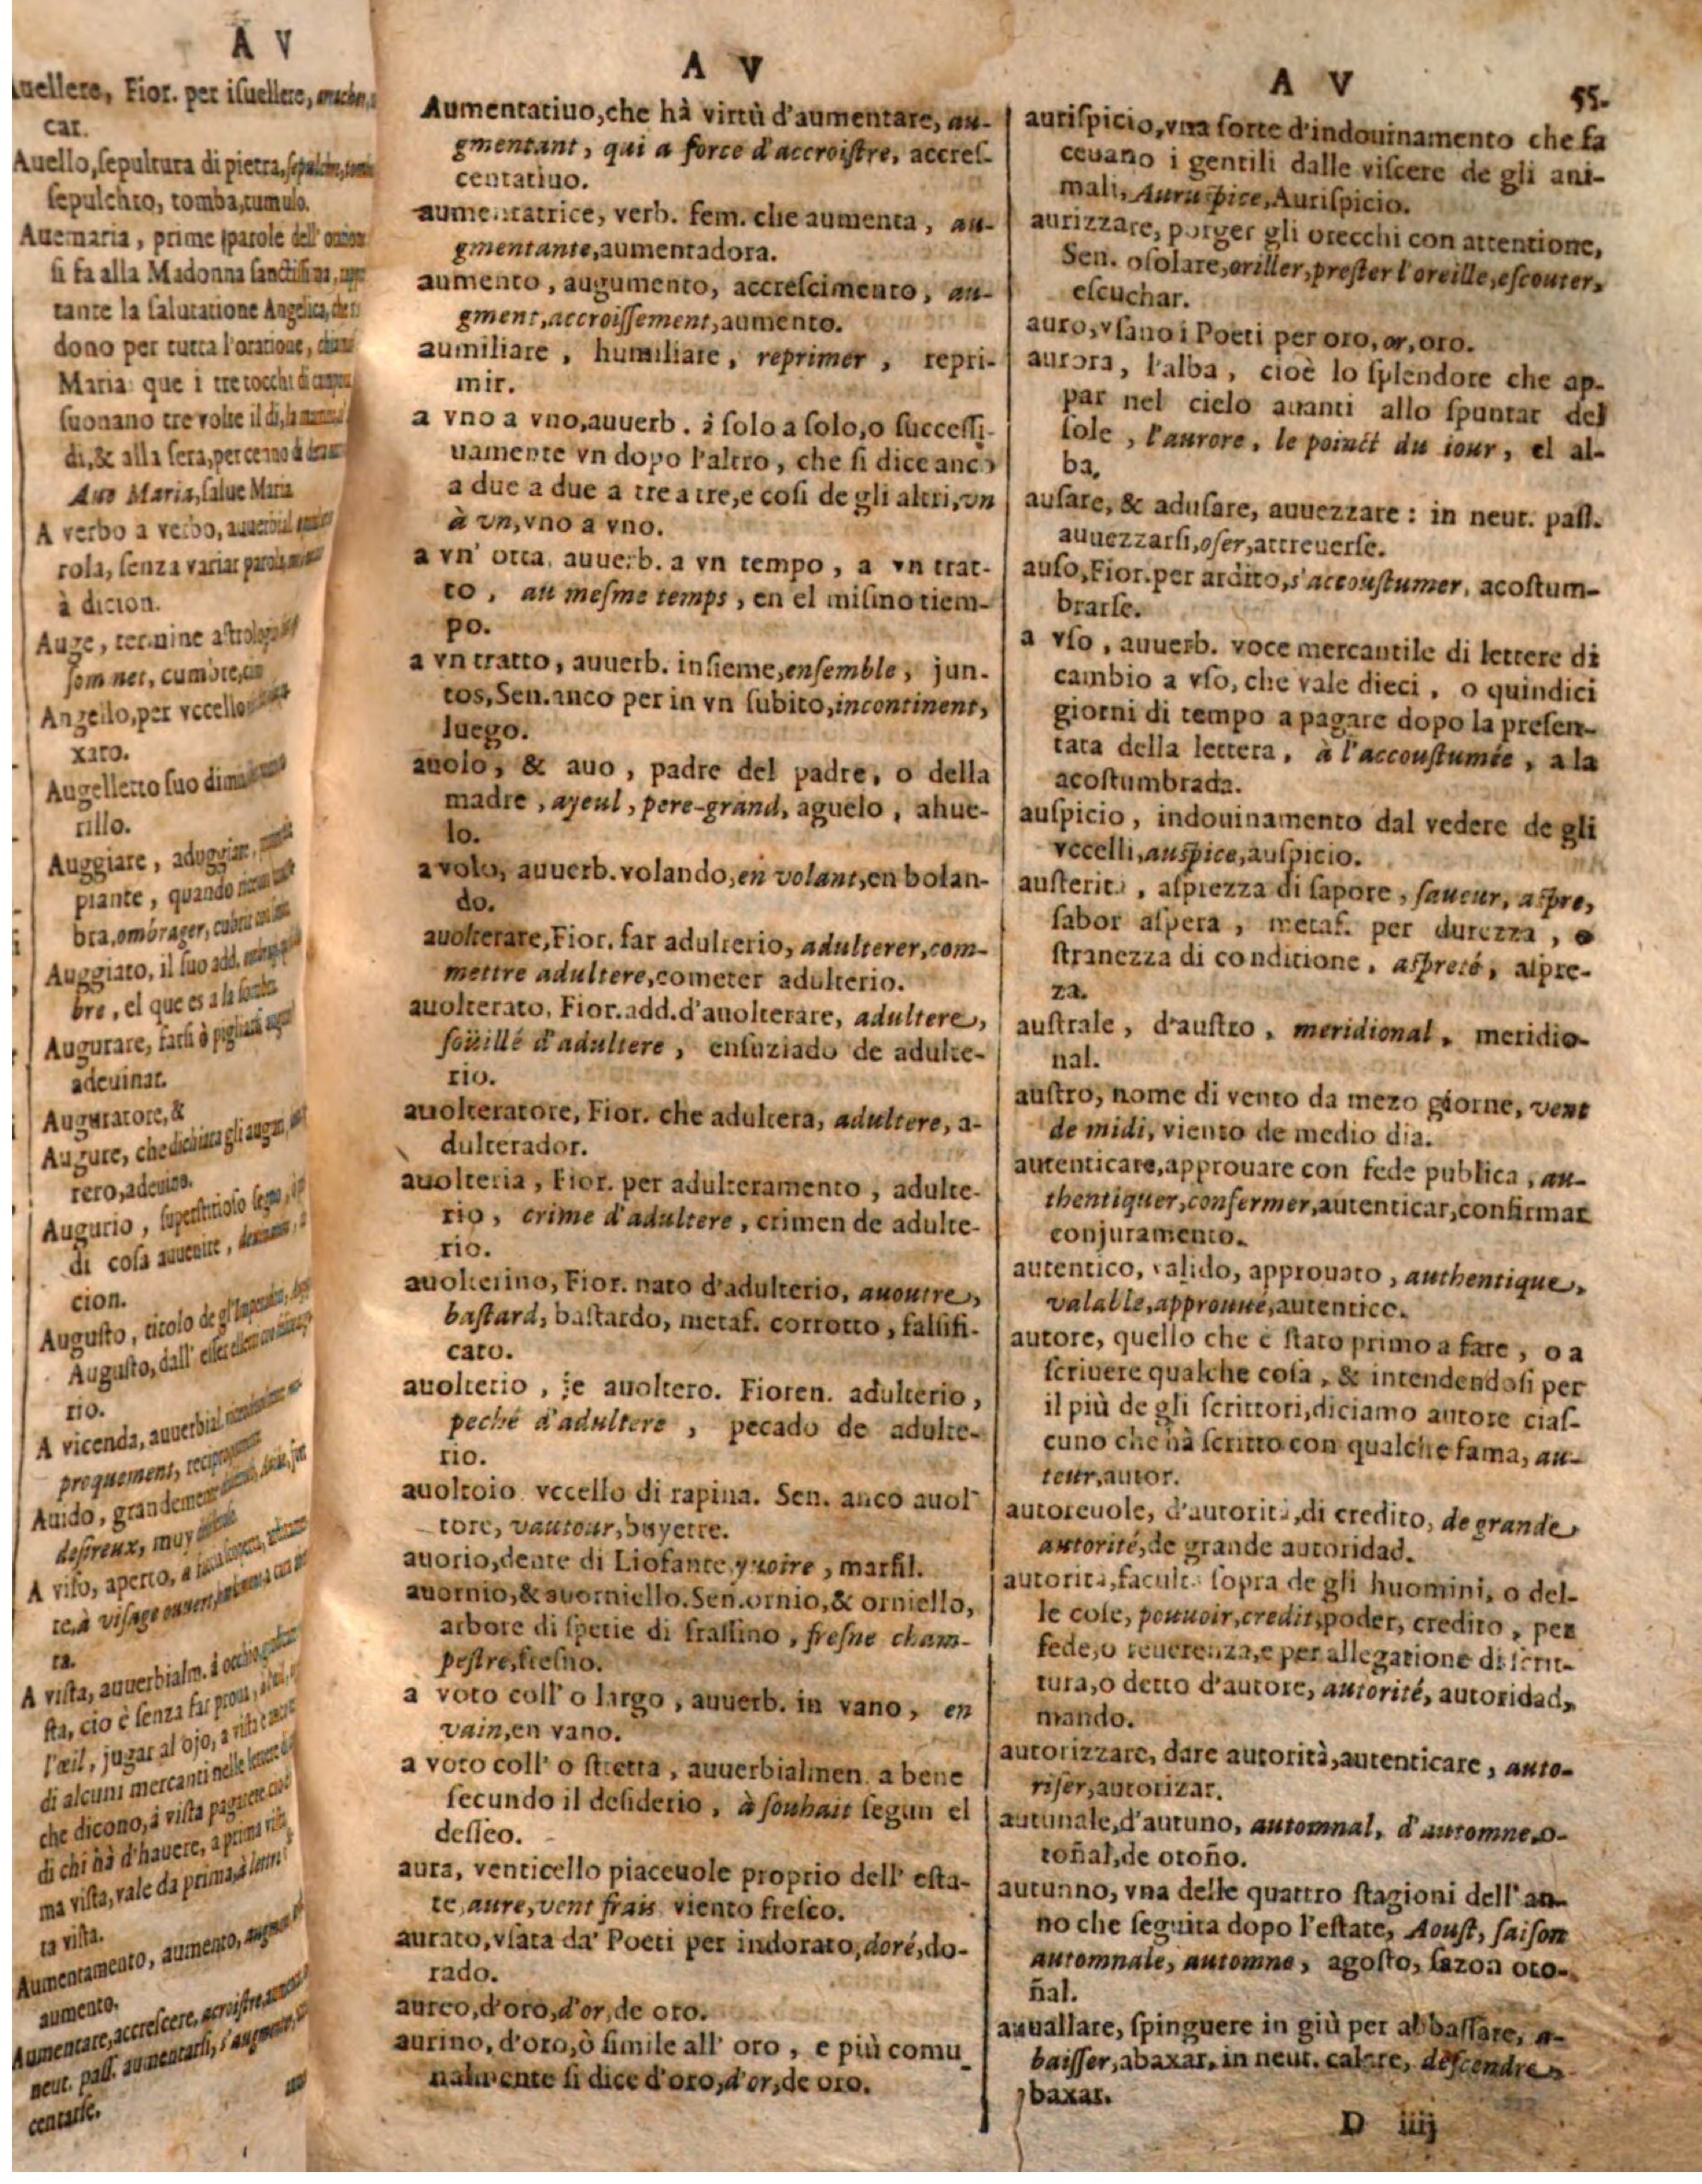 A V
Fior. per iſuellere,
car.
Auello,ſepultura di pietra,
ſepulchro, tomba,tumulo.
Auemaria, prime parole dell'
ſi fa alla Madonna
tante la ſalutatione Angelica,
dono per tutta l'oratione,
Maria que i tre tocchi di
ſuonano tre volte il dì,
di,& alla ſera,
Aue Maria,ſalue Maria
A verbo a verbo,
rola, ſenza variar
à dicion.
Auge, termine
cumbre,
per vccello
xaro.
Augelletto ſuo
rillo.
Auggiare, aduggiare,
piante, quando
bra,ombrager,
Auggiato, il ſuo add.
bre, el que es a la
Augurare, farſi ò pigliarſi
adeuinar.
Auguratore,&
Augure, che dichiara gli augurij,
rero,adeuino.
Augurio, ſuperſtitioſo
di coſa auuenire,
cion.
Auguſto, titolo de
Auguſto, dall'
rio.
A vicenda, auuerbial
proquement,
Auido,
deſireux, muy
A viſo, aperto, a
te,à viſage
ta.
A viſta, auuerbialm. à
ſta, cio è ſenza far
l'œil, jugar al ojo, a
di alcuni mercanti nelle
che dicono, à viſta
di chi hà d'hauere, a prima
ma viſta, vale da prima,
ta viſta.
Aumentamento, aumento,
aumento.
Aumentare,accreſcere, acroiſtre,
neut. paſſ. aumentarſi,
centarſe.
A V
Aumentatiuo,che hà virtù d'aumentare, au-
gmentant, qui a force d'accroiſtre, accreſ-
centatiuo.
aumentatrice, verb. fem. che aumenta, au-
gmentante,aumentadora.
aumento, augumento, accreſcimento, au-
gment,accroiſſement,aumento.
aumiliare, humiliare, reprimer, repri-
mir.
a vno a vno,auuerb. à ſolo a ſolo,o ſucceſſi-
uamente vn dopo l'altro, che ſi dice anco
a due a due a tre a tre,e coſi de gli altri,vn
à vn,vno a vno.
a vn' otta, auuerb. a vn tempo, a vn trat-
to, au meſme temps, en el miſmo tiem-
po.
a vn tratto, auuerb. inſieme,enſemble, jun-
tos,Sen.anco per in vn ſubito,incontinent,
luego.
auolo, & auo, padre del padre, o della
madre, ayeul, pere-grand, aguelo, ahue-
lo.
a volo, auuerb.volando,en volant,en bolan-
do.
auolterare,Fior. far adulterio, adulterer,com-
mettre adultere,cometer adulterio.
auolterato, Fior.add.d'auolterare, adultere,
ſoüillé d'adultere, enſuziado de adulte-
rio.
auolteratore, Fior. che adultera, adultere, a-
dulterador.
auolteria, Fior. per adulteramento, adulte-
rio, crime d'adultere, crimen de adulte-
rio.
auolterino, Fior. nato d'adulterio, auoutre,
baſtard, baſtardo, metaf. corrotto, falſifi-
cato.
auolterio, ſe auoltero. Fioren. adulterio,
peché d'adultere, pecado de adulte-
rio.
auoltoio vccello di rapina. Sen. anco auol-
tore, vautour,buyetre.
auorio,dente di Liofante,yuoire, marfil.
auornio,& auorniello.Sen.ornio,& orniello,
arbore di ſpetie di fraſſino, freſne cham-
peſtre,freſno.
a voto coll' o largo, auuerb. in vano, en
vain,en vano.
a voto coll' o ſtretta, auuerbialmen. a bene
ſecundo il deſiderio, à ſouhait ſegun el
deſſeo.
aura, venticello piaceuole proprio dell' eſta-
te,aure,vent frais viento freſco.
aurato,vſata da' Poeti per indorato,doré,do-
rado.
aureo,d'oro,d'or,de oro.
aurino, d'oro,ò ſimile all' oro, e più comu-
nalmente ſi dice d'oro,d'or,de oro.
A V 55.
auriſpicio,vna ſorte d'indouinamento che fa
ceuano i gentili dalle viſcere de gli ani-
mali, Auruſpice,Auriſpicio.
aurizzare, porger gli orecchi con attentione,
Sen. oſolare,oriller,preſter l'oreille,eſcouter,
eſcuchar.
auro,vſano i Poeti per oro,or,oro.
aurora, l'alba, cioè lo ſplendore che ap-
par nel cielo auanti allo ſpuntar del
ſole, l'aurore, le poinct du iour, el al-
ba.
auſare, & aduſare, auuezzare: in neut. paſſ.
auuezzarſi,oſer,attreuerſe.
auſo,Fior.per ardito,s'accouſtumer, acoſtum-
brarſe.
a vſo, auuerb. voce mercantile di lettere di
cambio a vſo, che vale dieci, o quindici
giorni di tempo a pagare dopo la preſen-
tata della lettera, à l'accouſtumée, a la
acoſtumbrada.
auſpicio, indouinamento dal vedere de gli
vccelli,auſpice,auſpicio.
auſterità, aſprezza di ſapore, ſaueur, aſpre,
ſabor aſpera, metaf. per durezza, o
ſtranezza di conditione, aſpreté, aſpre-
za.
auſtrale, d'auſtro, meridional, meridio-
nal.
auſtro, nome di vento da mezo giorne, vent
de midi, viento de medio dia.
autenticare,approuare con fede publica, au-
thentiquer,confermer,autenticar,confirmar
conjuramento.
autentico, valido, approuato, authentique,
valable,approuué,autentico.
autore, quello che è ſtato primo a fare, o a
ſcriuere qualche coſa, & intendendoſi per
il più de gli ſcrittori,diciamo autore ciaſ-
cuno che hà ſcritto con qualche fama, au-
teur,autor.
autoreuole, d'autorità,di credito, de grande
autorité,de grande autoridad.
autorità,facultà ſopra de gli huomini, o del-
le coſe, pouuoir,credit,poder, credito, per
fede,o reuerenza,e per allegatione di ſcrit-
tura,o detto d'autore, autorité, autoridad,
mando.
autorizzare, dare autorità,autenticare, auto-
riſer,autorizar.
autunale,d'autuno, automnal, d'automne,o-
toñal,de otoño.
autunno, vna delle quattro ſtagioni dell'an-
no che ſeguita dopo l'eſtate, Aouſt, ſaiſon
automnale, automne, agoſto, ſazon oto-
ñal.
auuallare, ſpinguere in giù per abbaſſare, a-
baiſſer,abaxar, in neut. calare, deſcendre,
baxar.
D iiij